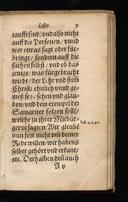 Leser.
tauffe sind / vnd also nicht
auff die Personen / vnnd
wer etwas sagt oder für-
bringe / sondern auff die
sachen selbst / vnd ob das
jenige / was fürgebracht
würde / der Lehr vnd stim̃
Christi ehnlich vnnd ge-
meß sey / sehen vnd glau-
ben / vnd dem exempel der
Samariter folgen solle /
welche zu ihrer Mitbür-
gerin sagten: Wir glaubē
nun fort nicht vmb deiner
Rede willen / wir haben
selber gehört vnd erkant /
etc. Derhalben deñ auch
A v